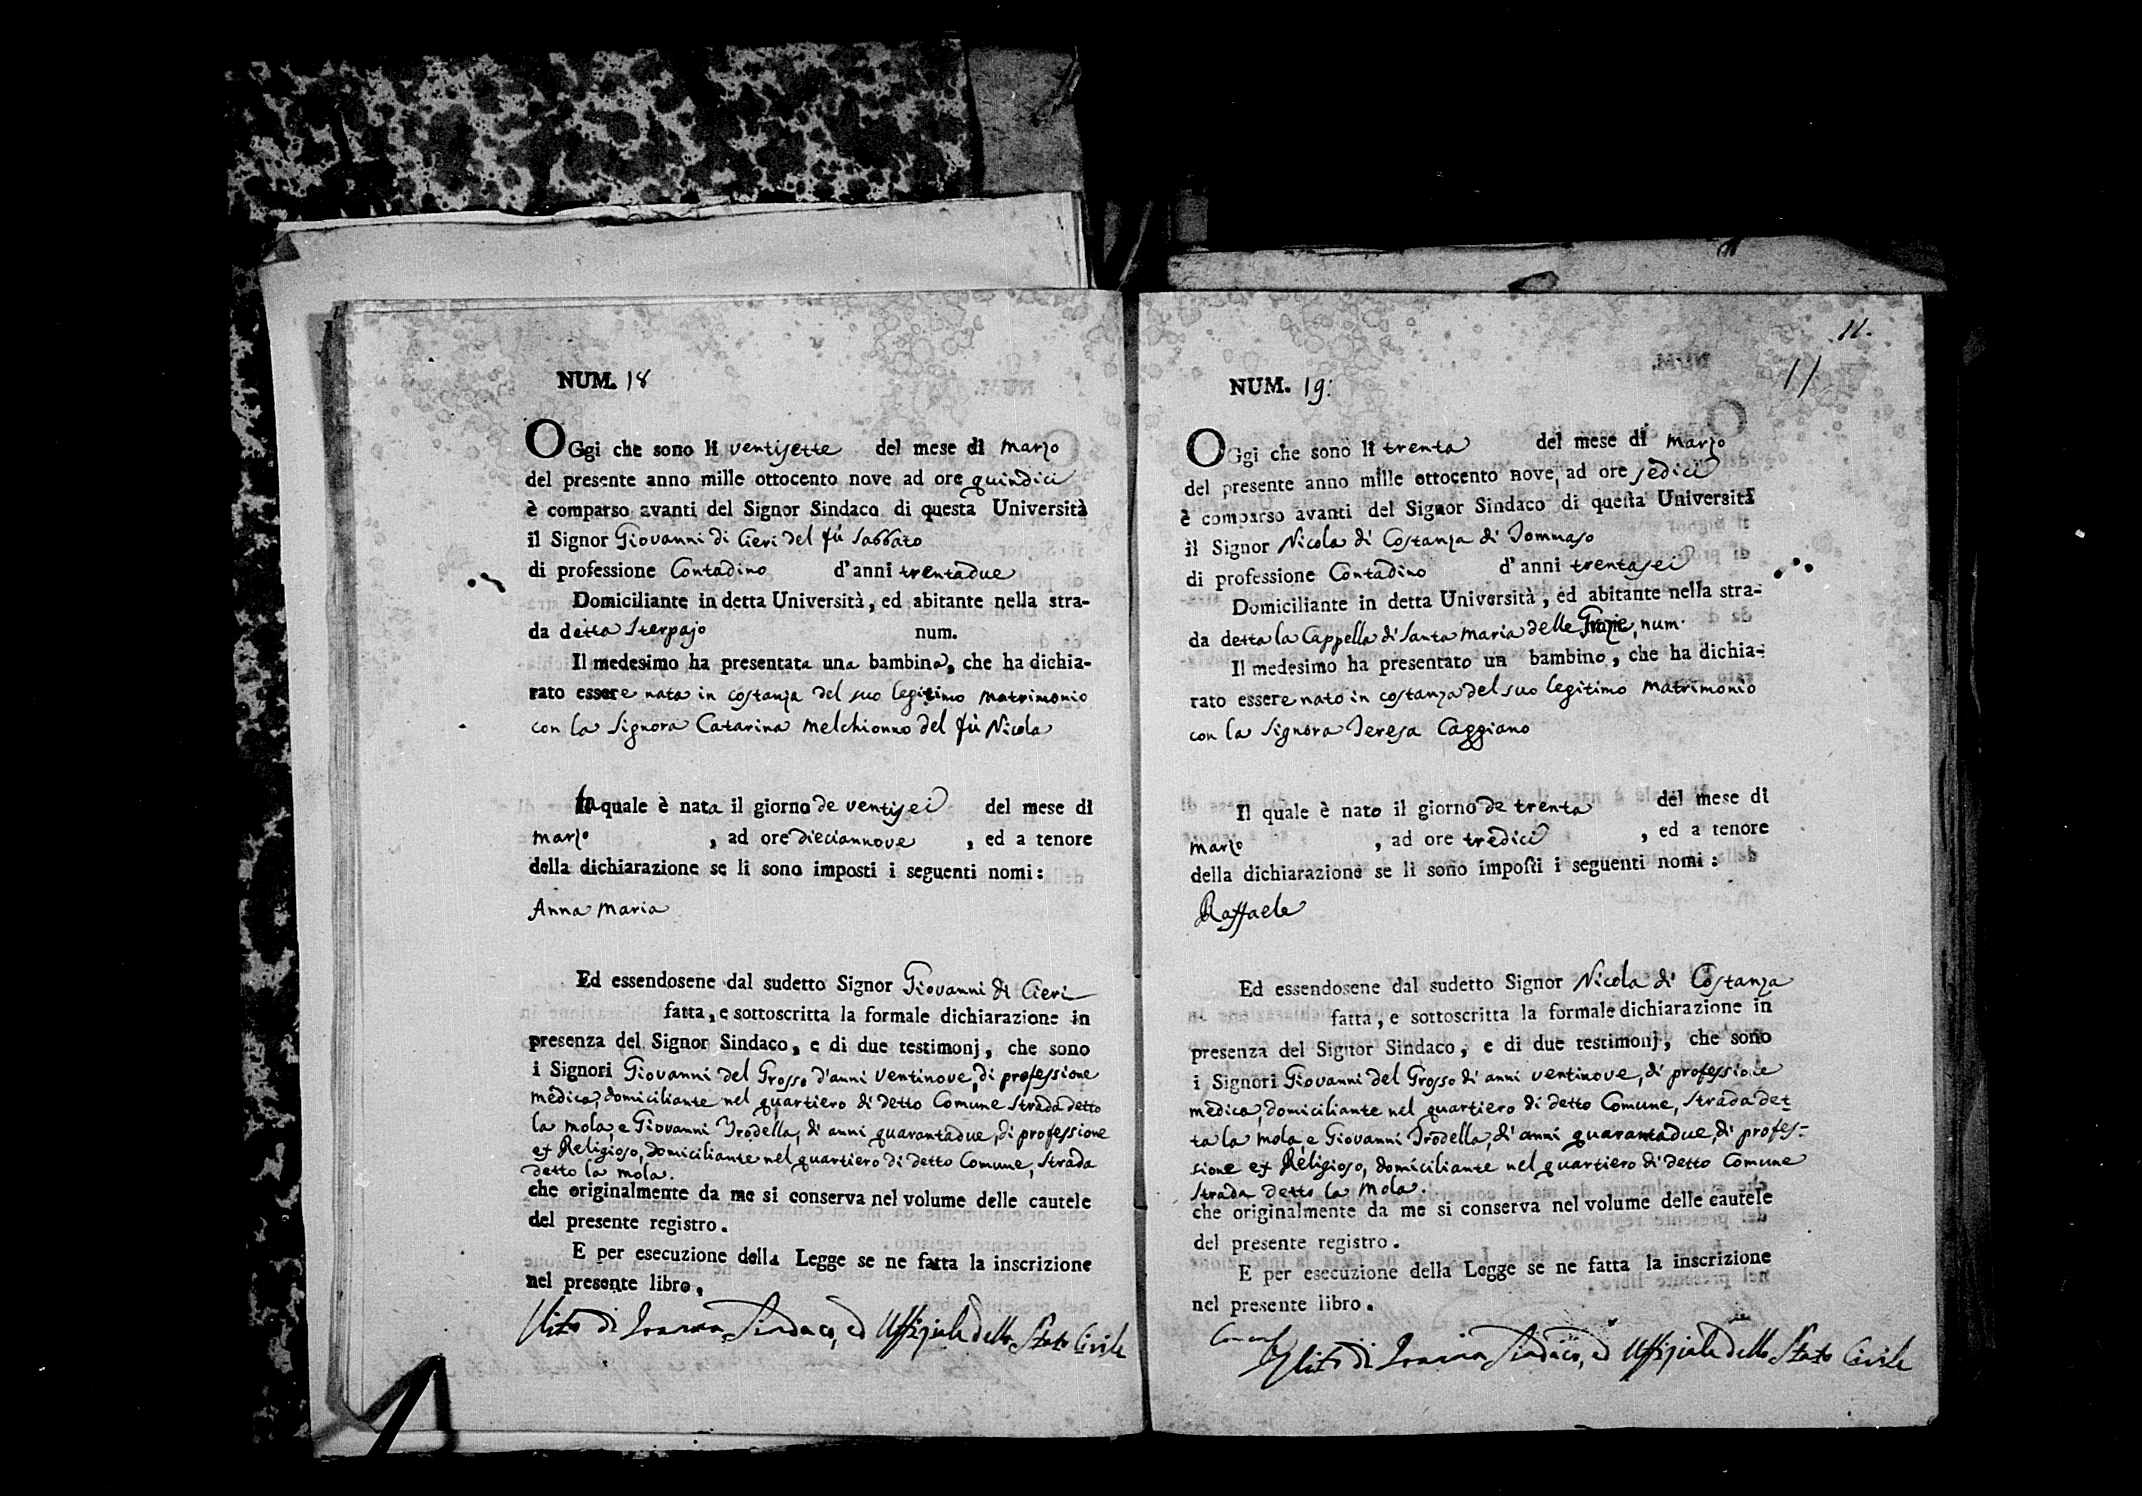 NUM. 18
OGgi che sono li ventisette del mese di Marzo
del presente anno mille ottocento nove ad ore quindici
è comparso avanti del Signor Sindaco di questa Università
il Signor Giovanni di Cieri del fù Sabbato
di professione Contadino d'anni trentadue
Domiciliante in detta Università, ed abitante nella stra-
da detta Sterpajo num.
Il medesimo ha presentata una bambina, che ha dichia-
rato essere nata in costanza del suo legitimo Matrimonio
con la Signora Catarina Melchionno del fù Nicola
La quale è nata il giorno de ventisei del mese di
Marzo , ad ore dieciannove , ed a tenore
della dichiarazione se li sono imposti i seguenti nomi:
Anna Maria
Ed essendosene dal sudetto Signor Giovanni di Cieri
fatta, e sottoscritta la formale dichiarazione in
presenza del Signor Sindaco, e di due testimonj, che sono
i Signori Giovanni del Grosso d'anni ventinove, di professione
medica, domiciliante nel quartiero di detto Comune Strada detto
la Mola, e Giovanni Trodella, di anni quarantadue, di professione
ex Religioso, domiciliante nel quartiero di detto Comune, Strada
detto la Mola.
che originalmente da me si conserva nel volume delle cautele
del presente registro.
E per esecuzione della Legge se ne fatta la inscrizione
nel presente libro.
Vito di Sindaco, ed Uffiziale dello Stato Civile
11.
11
NUM. 19:
OGgi che sono li trenta del mese di Marzo
del presente anno mille ottocento nove, ad ore sedici
è comparso avanti del Signor Sindaco di questa Università
il Signor Nicola di Costanza di Tommaso
di professione Contadino d'anni trentasei
Domiciliante in detta Università, ed abitante nella stra-
da detta la Cappella di Santa Maria delle Grazie, num.
Il medesimo ha presentato un bambino, che ha dichia-
rato essere nato in costanza del suo legitimo Matrimonio
con la Signora Teresa Caggiano
Il quale è nato il giorno de trenta del mese di
Marzo , ad ore tredici , ed a tenore
della dichiarazione se li sono imposti i seguenti nomi:
Raffaele
Ed essendosene dal sudetto Signor Nicola di Costanza
fatta, e sottoscritta la formale dichiarazione in
presenza del Signor Sindaco, e di due testimonj, che sono
i Signori Giovanni del Grosso di anni ventinove, di professione
medica, domiciliante nel quartiero di detto Comune, Strada det-
ta la Mola, e Giovanni Trodella, di anni quarantadue, di profes-
sione ex Religioso, domiciliante nel quartiero di detto Comune
Strada detto la Mola.
che originalmente da me si conserva nel volume delle cautele
del presente registro.
E per esecuzione della Legge se ne fatta la inscrizione
nel presente libro.
Vito di Sindaco, ed Uffiziale dello Stato Civile